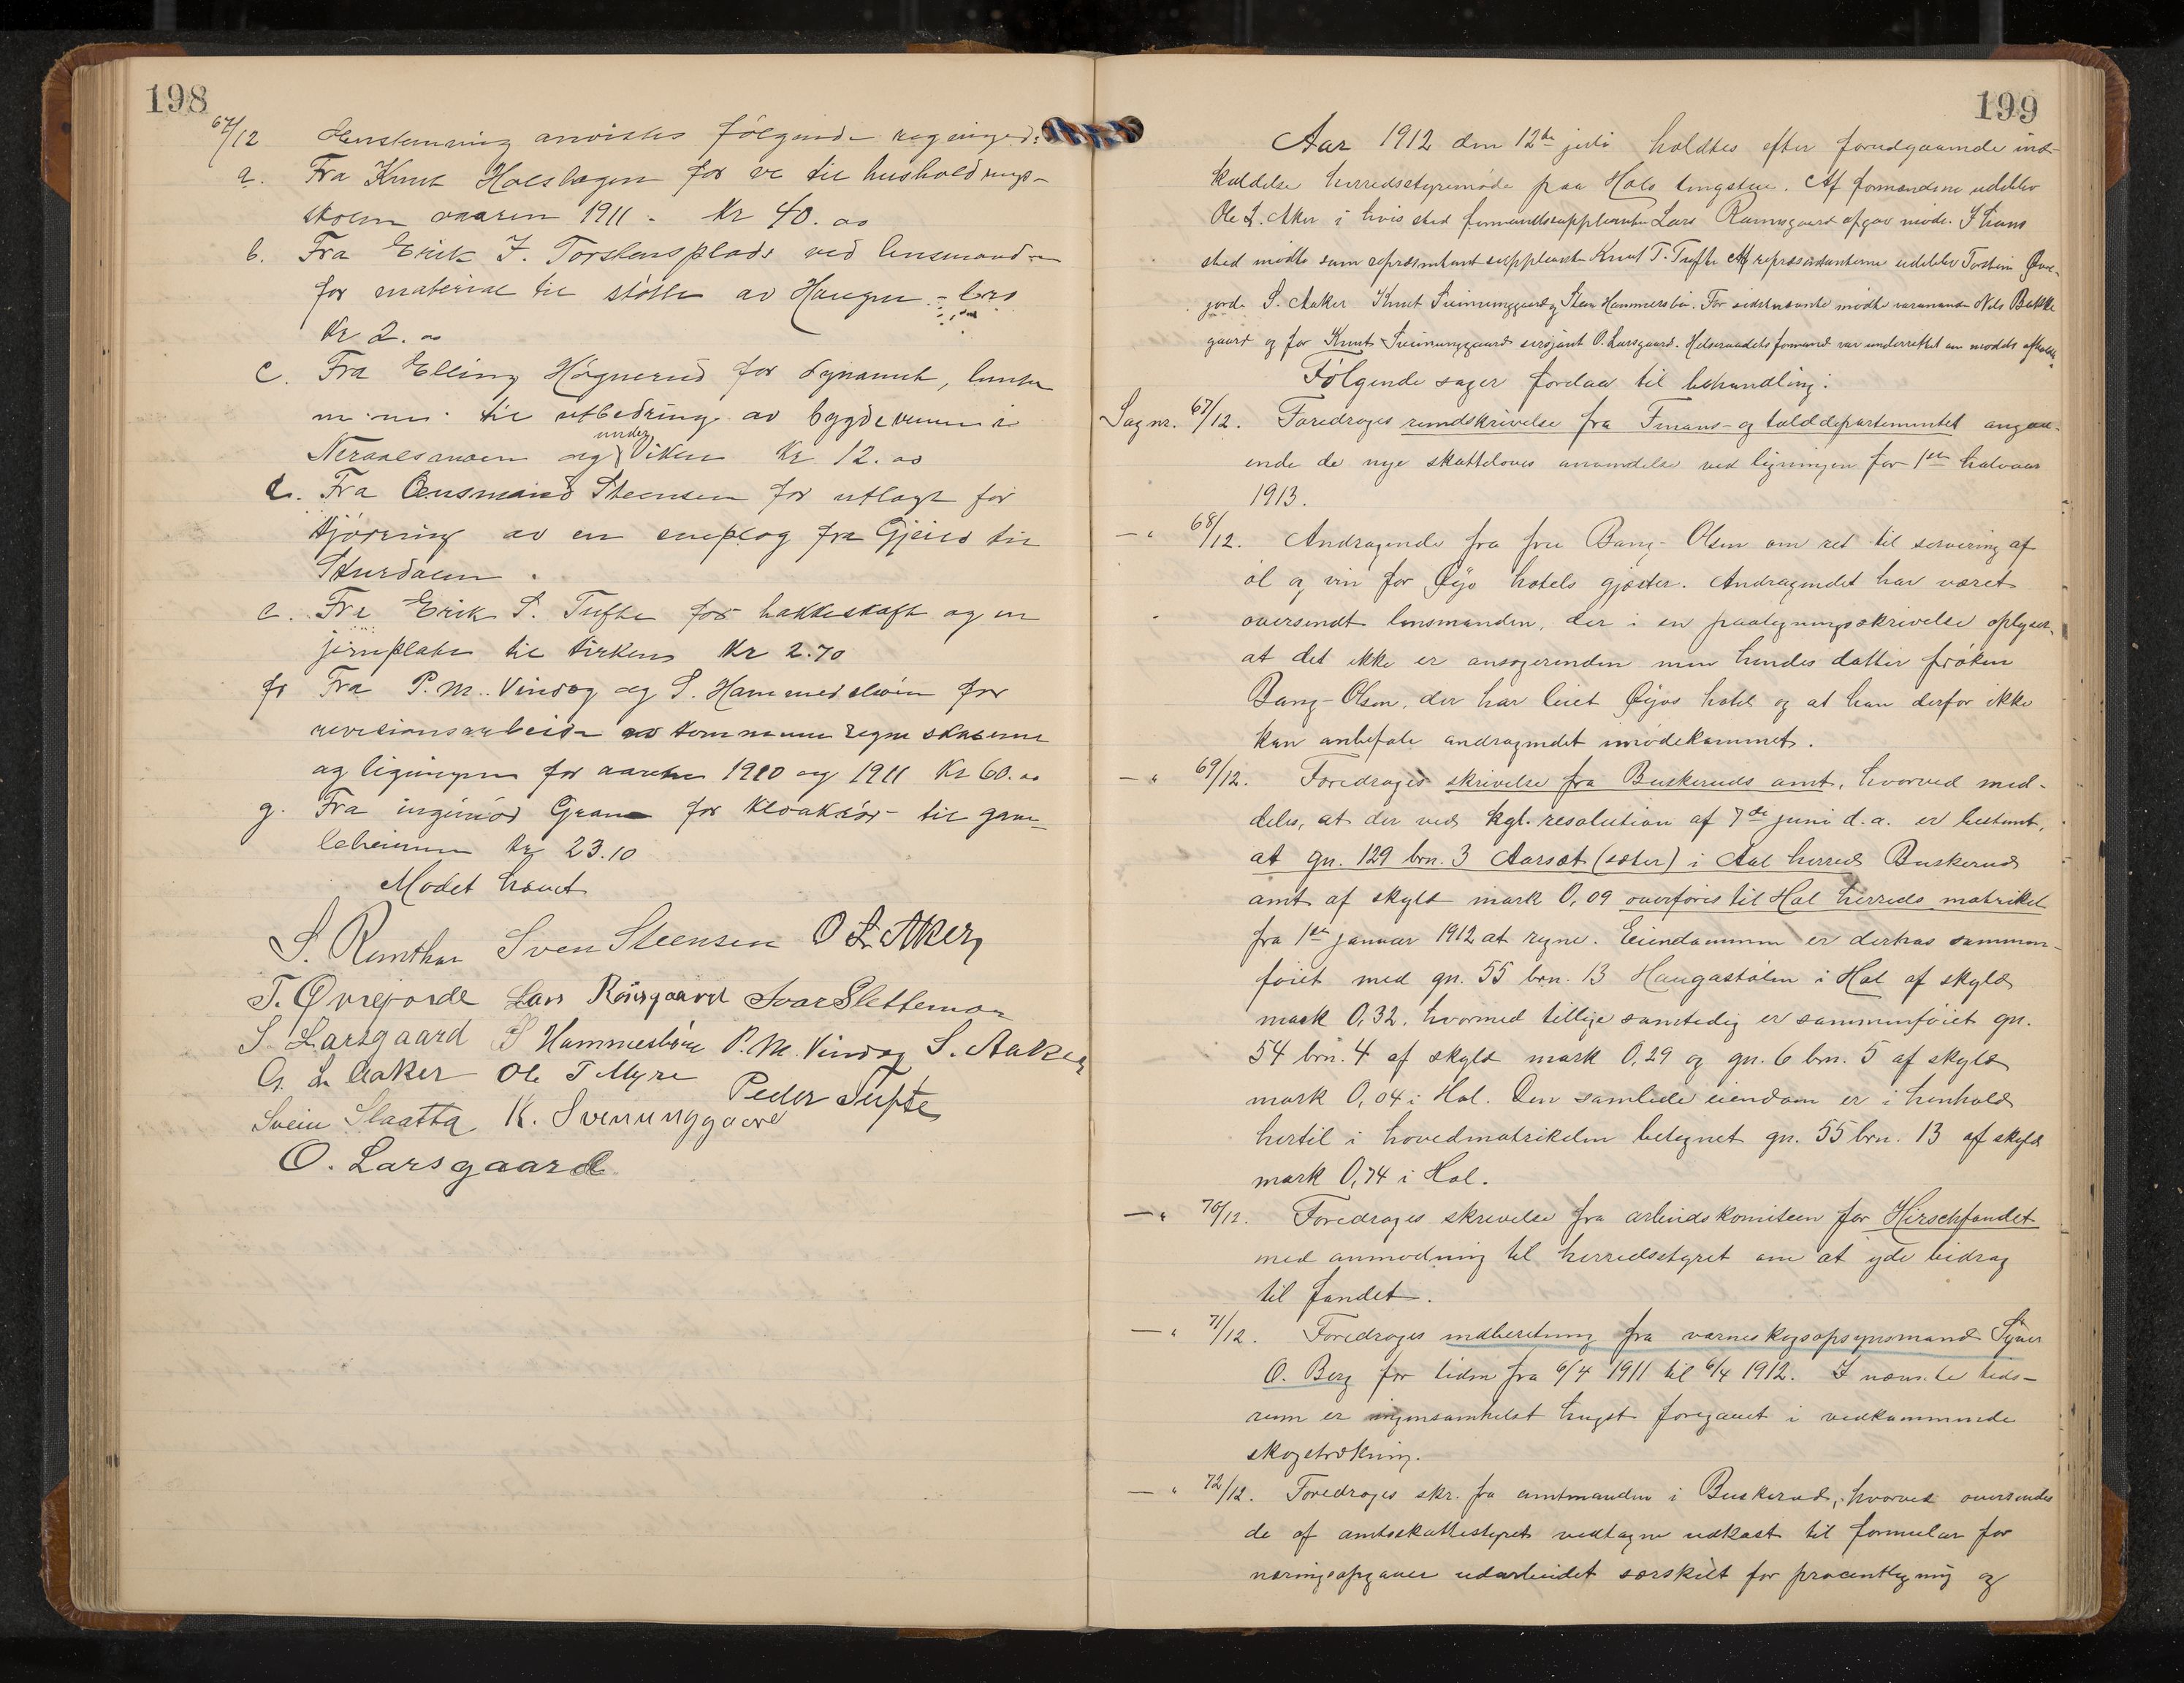 198
67/12 Overstemning anvistes følgende regninger:
a. Fra Knut Holshagen for ve til husholdnings-
skolen vaaren 1911 - Kr 40.00
b. Fra Erik J. Torstensplads ved lensmanden
for materiale til støtte av Haugen-bro
Kr 2.00
c. Fra Elling Høgnerud for dynamit, lunter
m.m. til utbedring av bygdeveien i
Neraalsaasen og under Viken Kr 12.00
d. Fra Lensmand Steensen for utlagt for
kjøring av en sneplog fra Gjeilo til
Skurdalen.
e. Fra Erik S. Tufte for hakkeskaft og en
jernplate til kirken Kr 2.70
f. Fra P.M. Vindeg og S. Hammersbøen for
revisionsarbeide av kommuneregnskaberne
og ligningen for aarene 1910 og 1911 Kr 60.00
g. Fra ingeniør Gran for kloakrør til gam-
leheimen Kr 23.10
Mødet hævet
S. Remthun Sven Steensen O L Aker
T. Øvrejorde Lars Rønsgaard Ivar Slettemoen
S. Larsgaard S Hammersbøen P.M. Vindeg S. Aaker
G. L. Aaker Ole T Myre Peder Tufte
Svein Slaatta K. Svenunggaard
O. Larsgaard
199
Aar 1912 den 12te juli holdtes efter forudgaaende ind-
kaldelse herredsstyremøde paa Hols tingstue. Af formændene udeblev
Ole L. Aker i hvis sted formandssuppleanten Lars Rønsgaard afgav møde. I hans
sted mødte som repræsentantsuppleant Knut T. Tufte. Af repræsentanterne udeblev Torstein Øvre-
jorde S. Aaker Knut Svenunggaard og Sten Hammersbø. For sidstnævnte mødte varamand Nils Bakke
gaard og for Knut Svenunggaard sersjant O. Larsgaard. Helseraadets formand var underrettet om mødets afholdelse.
Følgende sager fordaa til behandling:
Sag nr. 67/12. Foredroges rundskrivelse fra Finans- og tolddepartementet angaa-
ende de nye skattelovers anvendelse ved ligningen for 1ste halvaar
1913.
—"— 68/12. Andragende fra fru Bang-Olsen om ret til servering af
øl og vin for Øyo hotels gjæster. Andragendet har været
oversendt lensmanden, der i en paategningsskrivelse oplyser,
at det ikke er ansøgerinden men hendes datter frøken
Bang-Olsen, der har leiet Øyos hotel og at han derfor ikke
kan anbefale andragendet imødekommet.
—"— 69/12. Foredroges skrivelse fra Buskeruds amt, hvorved med-
deles, at der ved kgl. resolution af 7de juni d.a. er bestemt,
at gn. 129 brn. 3 Aarsæt (sæter) i Aal herred Buskerud
amt af skyld mark 0,09 overføres til Hol herreds matrikel
fra 1ste januar 1912 at regne. Eiendommen er derhos sammen-
føiet med gn. 55 brn. 13 Haugastølen i Hol af skyld
mark 0,32, hvormed tillige samtidig er sammenføiet gn.
54 brn. 4 af skyld mark 0,29 og gn. 6 brn. 5 af skyld
mark 0,04 i Hol. Den samlede eiendom er i henhold
hertil i hovedmatrikelen betegnet gn. 55 brn. 13 af skyld
mark 0,74 i Hol.
—"— 70/12. Foredroges skrivelse fra arbeidskomiteen for Hirschfondet
med anmodning til herredsstyret om at yde bidrag
til fondet.
—"— 71/12. Foredroges indberetning fra værneskogsopsynsmand Syver
O. Berg for tiden fra 6/4 1911 til 6/4 1912. I nævnte tids-
rum er ingensomhelst hugst foregaaet i vedkommende
skogstrækning.
—"— 72/12. Foredroges skr. fra amtmanden i Buskerud, hvorved oversendes
de af amtsskattestyret vedtagne udkast til formular for
næringsopgaver udarbeidet særskilt for procentligning og